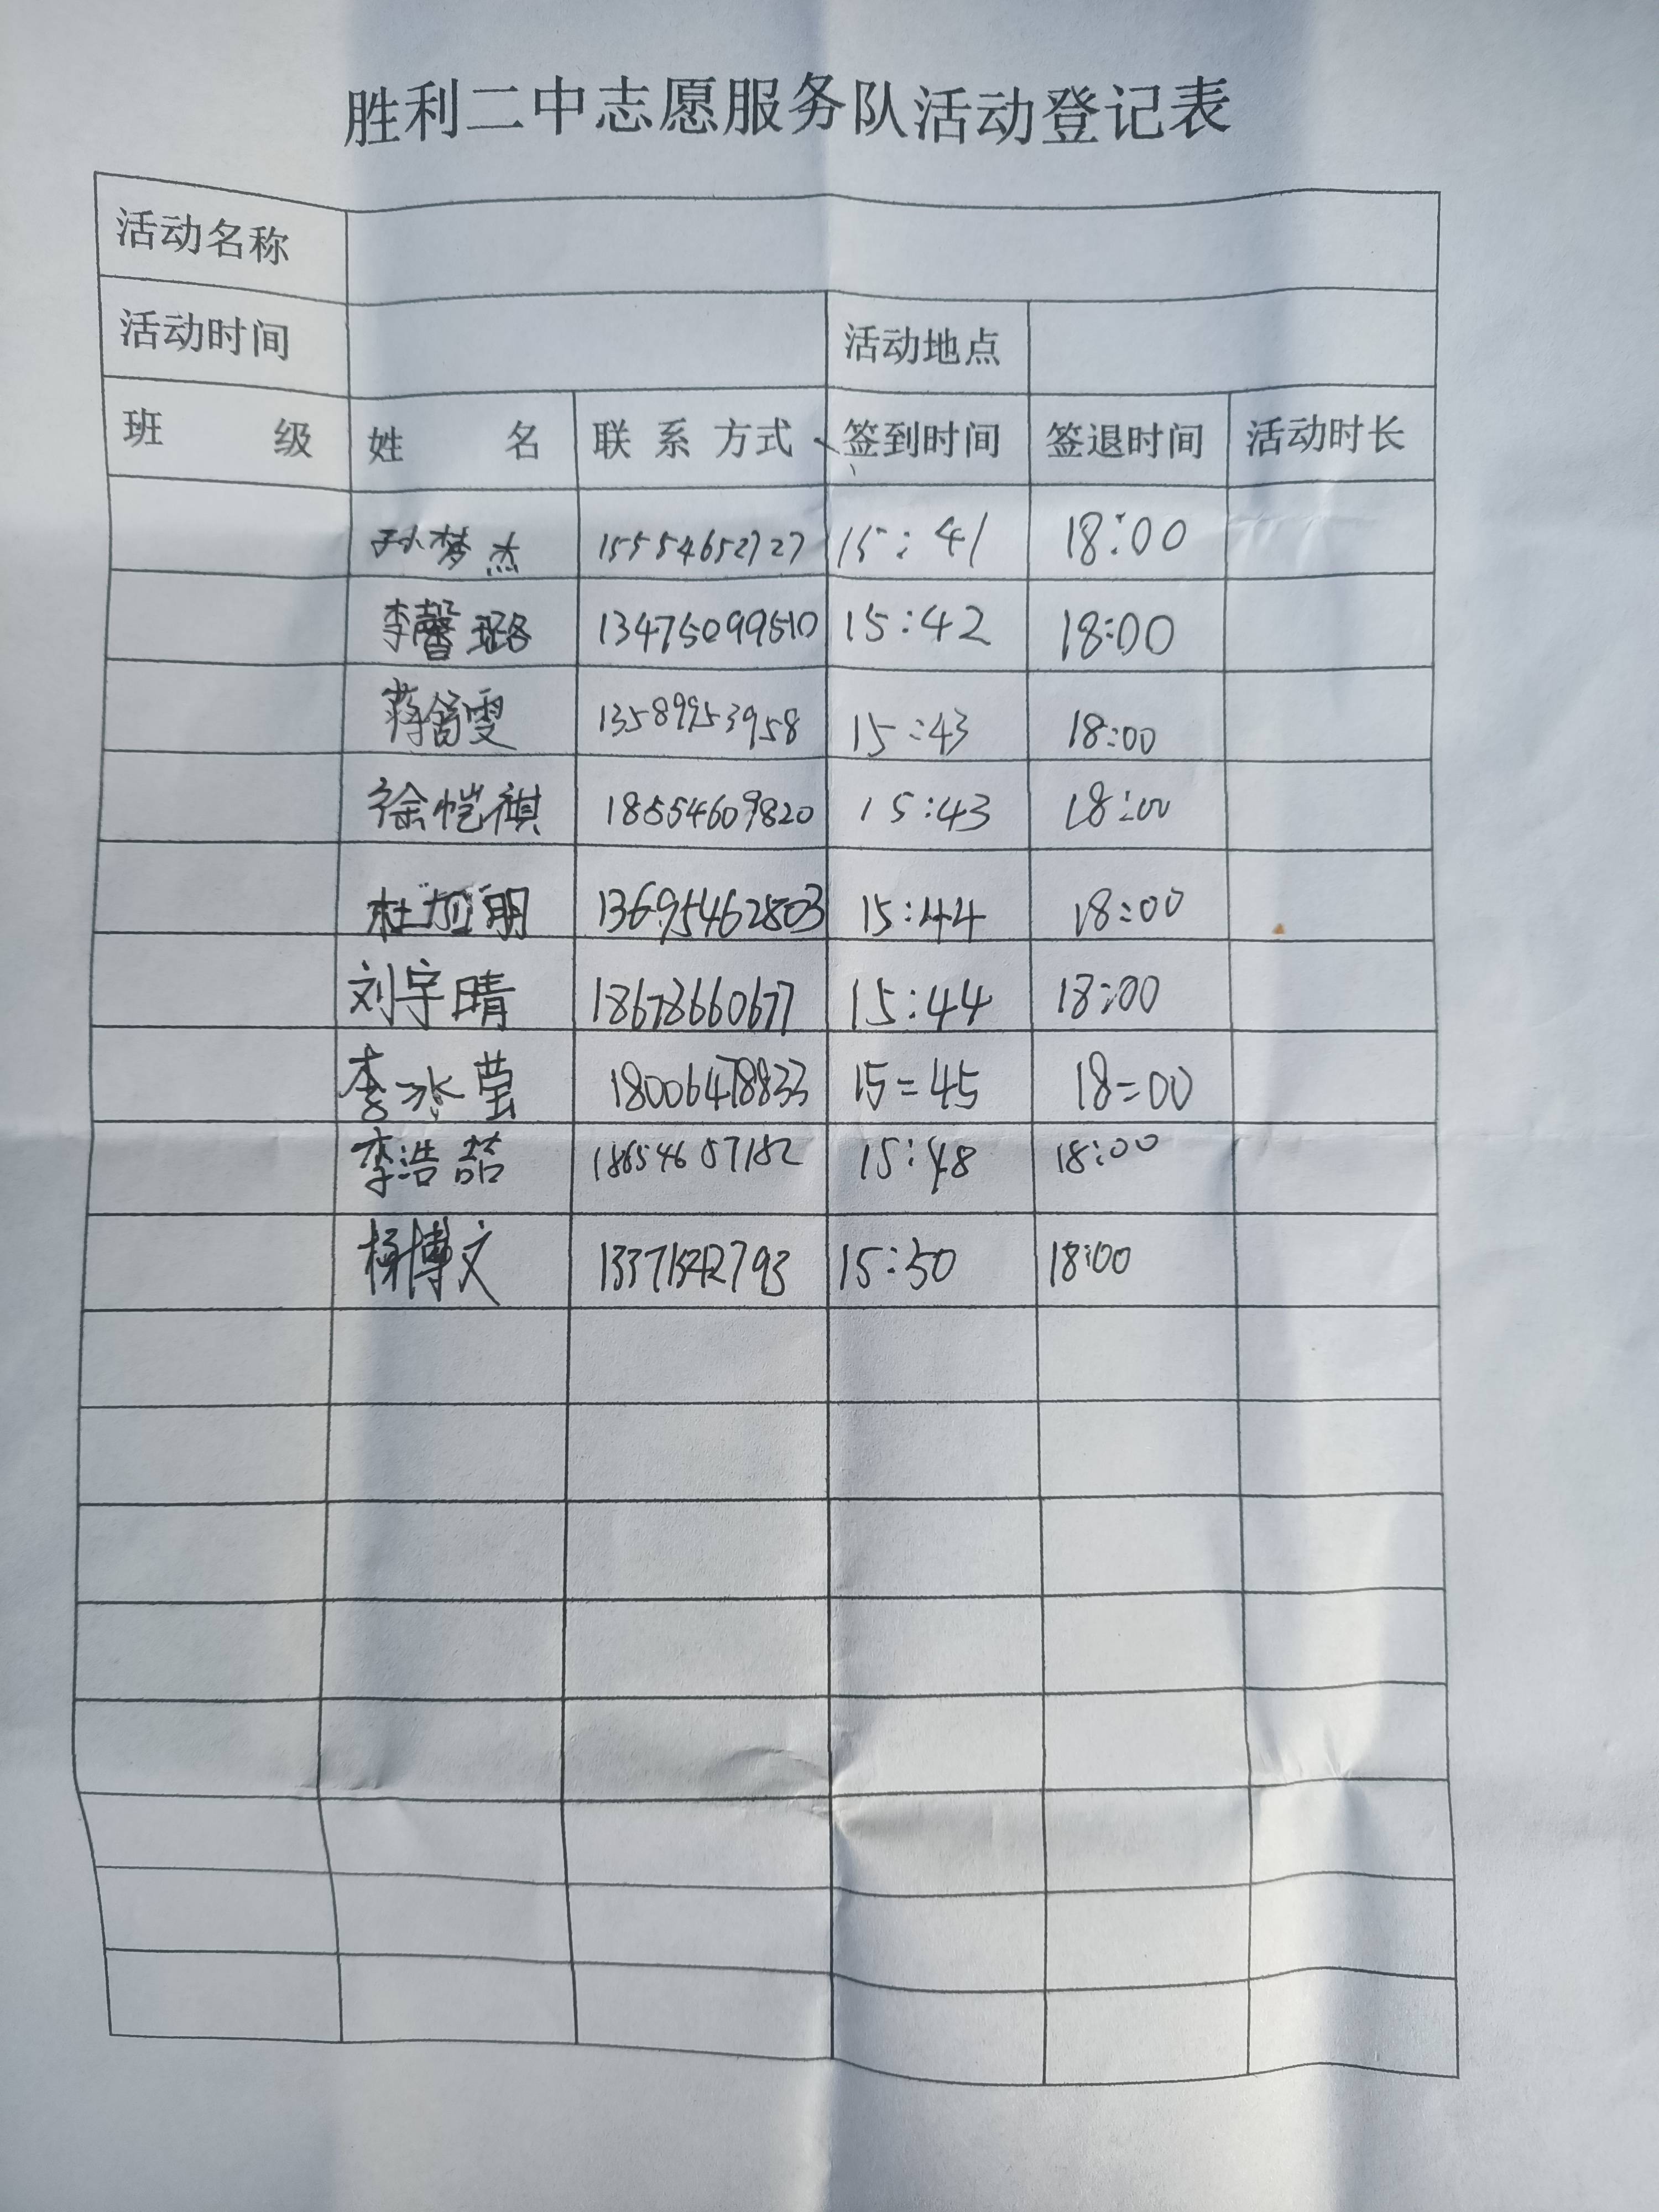 胜利二中志愿服务队活动登记表
活动名称
活动时间 活动地点
班 级 姓 名 联系方式 签到时间 签退时间 活动时长
孙梦杰 15554652727 15:41 18:00
李馨璐 13475099510 15:42 18:00
蒋舒雯 13589953958 15:43 18:00
徐恺祺 18554609820 15:43 18:00
杜 明 13695462803 15:44 18:00
刘宇晴 18678660677 15:44 18:00
李冰莹 18006478833 15=45 18=00
李浩喆 18654657182 15:48 18:00
杨博文 15:50 18:00